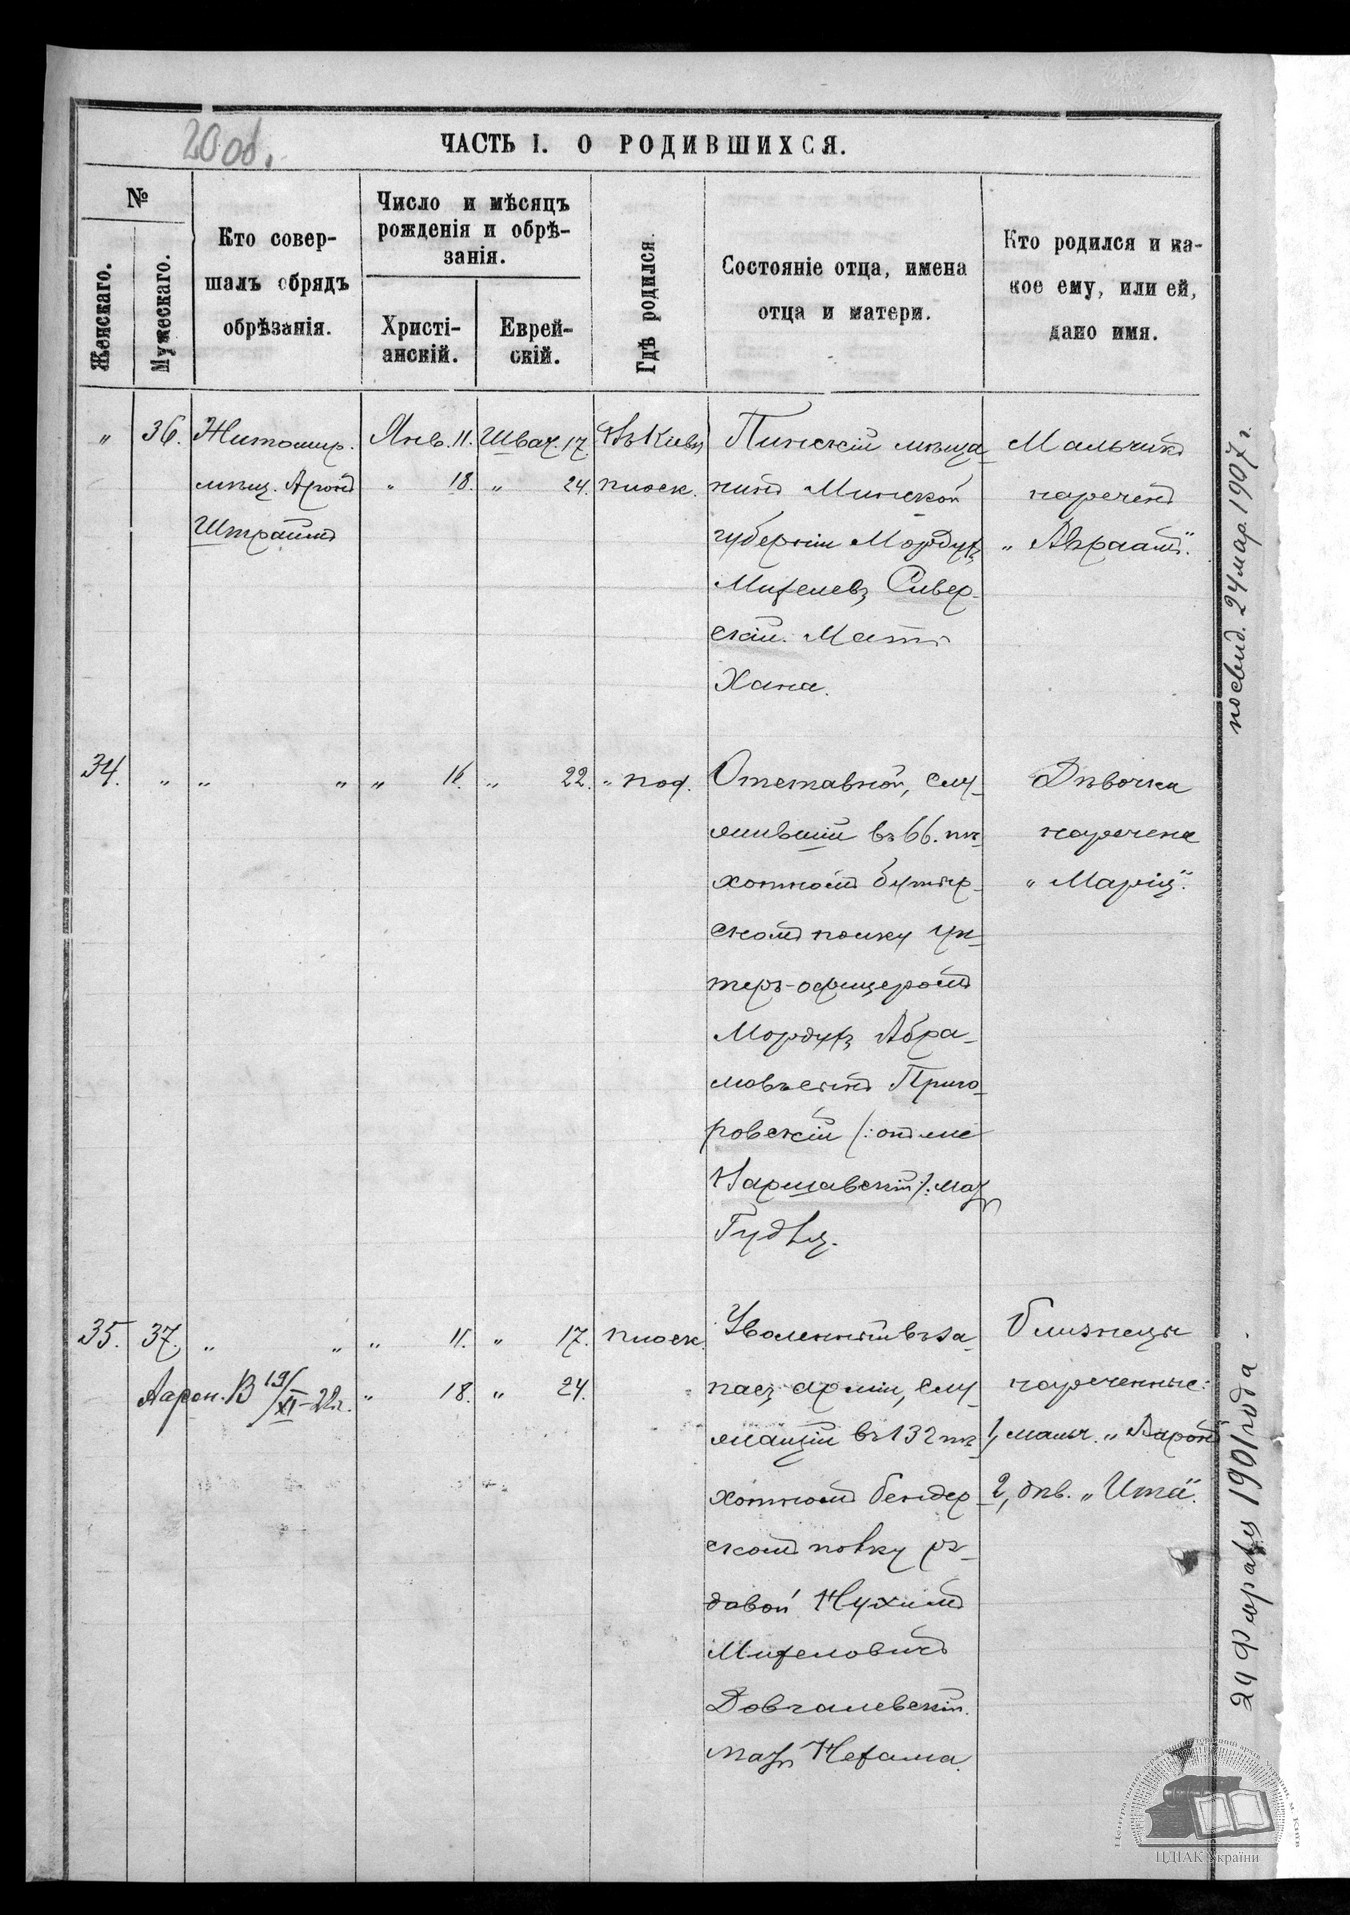 20 об.
ЧАСТЬ I. О РОДИВШИХСЯ.
№
Женскаго.
Мужескаго.
Кто совер-
шалъ обрядъ
обрѣзанія.
Число и мѣсяцъ
рожденія и обрѣ-
занія.
Христі-
анскій.
Еврей-
скій.
Гдѣ родился.
Состояніе отца, имена
отца и матери.
Кто родился и ка-
кое ему, или ей,
дано имя.
„ 36. Житомир. Янв. 11. Шват. 17. Въ Кіевѣ
мѣщ. Аронъ „ 18. „ 24. плоск.
Штраимъ
Пинскій мѣща-
нинъ Минской
губерніи Мордухъ
Михелевъ Сивер-
скій. Мать
Хана.
Мальчикъ
нареченъ
„Авраамъ“.
34. „ „ „ „ 16. „ 22. „ под.
Отставной, слу-
жившій въ 66. пѣ-
хотномъ бутыр-
скомъ полку ун-
теръ-офицеромъ
Мордухъ Абра-
мовъ сынъ Приго-
ровскій /: онъ же
Варшавскій :/. мать
Гудля.
Дѣвочка
наречена
„Марія“.
35. 37. „ „ „ 11. „ 17. плоск.
Аарон. В 19/XI-22г. „ 18. „ 24.
Уволенный въ за-
пасъ арміи, слу-
жащій въ 132 пѣ-
хотномъ бендер-
скомъ полку ря-
довой Нухимъ
Михеловичъ
Довгалевскій.
мать Нехама.
близнецы
нареченные:
1, мальч. „Ааронъ“
2, дѣв. „Ита“.
по свид. 24 мар. 1907 г.
24 Февраля 1901 года.
ЦДІАК України